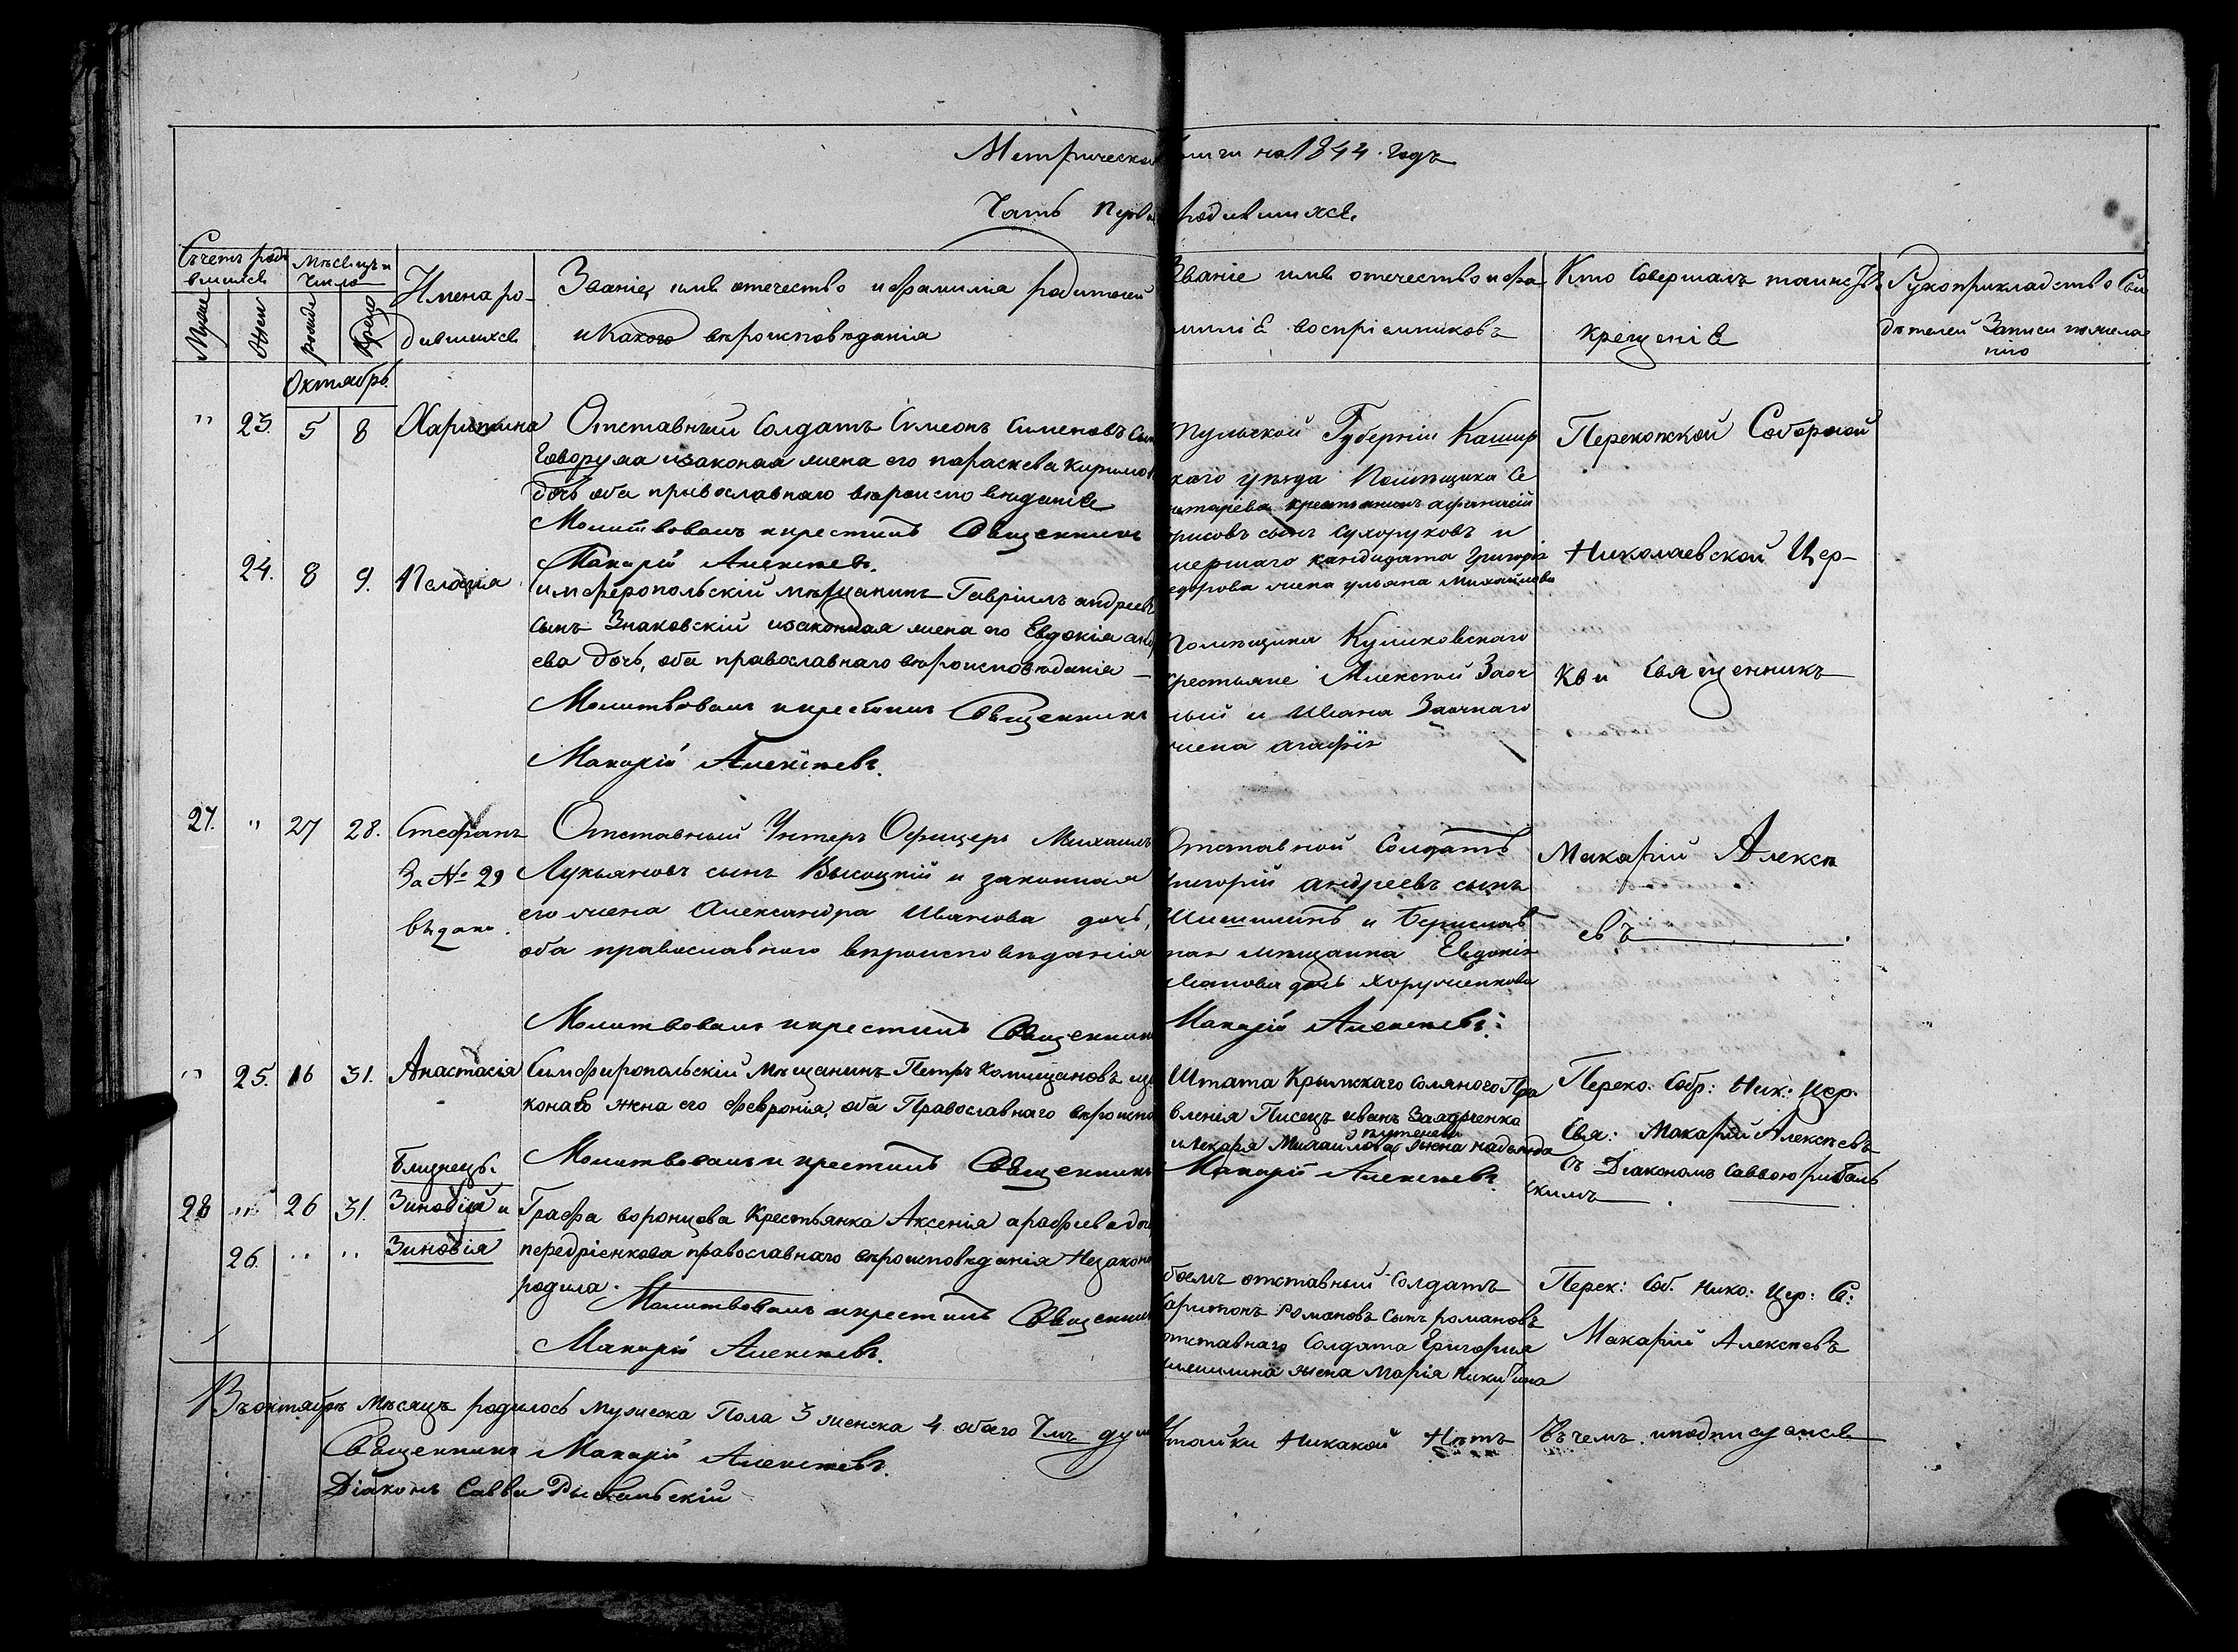 Метрической книги на 1844. годъ
Часть Первая родившихся.
Счетъ роди
вшихся
Мѣсяцъ и
Число
Имена ро-
дившихся
Званіе, имя отечество и фамилія родителей
и Какого вѣроисповѣданія
Званіе имя отечество и фа
миліЯ воспріемниковъ
Кто Совершалъ таинство
крещеніЯ
Рукоприкладство Сви
дѣтелей Записи по жела
нію
Муж
Жен
рожд
Крещ
Октябрь.
" 23. 5 8 Харитина
Отставный Солдатъ Симеонъ Сименовъ Сынъ
Говоруха и законая жена его параскева кирилов
дочь оба православнаго вѣроисповѣданія
Молитвовалъ и крестилъ Священникъ
Макарій Алексѣевъ.
Тульской Губерніи Кашир
скаго уѣзда Помѣщика
крестьянинъ афанасій
Борисовъ сынъ Сухоруковъ и
умершаго кандидата григорія
Федорова жена ульяна михайлова
Перекопской Соборной
24. 8 9. Пелагія
Симферопольскій мѣщанинъ Гавріилъ андреевъ
сынъ Знаковскій и законная жена его Евдокія анд
ева дочь, оба православнаго вѣроисповѣданія —
Молитвовалъ и крестилъ Священникъ
Макарій Алексѣевъ.
Помѣщика Куликовскаго
крестьяне Алексѣй Заоч
ный и Ивана Заочнаго
жена агафія
Николаевской Цер-
кви Священникъ
27. " 27 28. Стефанъ
За № 29
выдано.
Отставный Унтеръ Офицеръ Михаилъ
Лукьяновъ сынъ Высоцкій и законная
его жена Александра Иванова дочь,
оба православного вѣроисповѣданія
Молитвовалъ и крестилъ Священникъ
Отставной Солдатъ
Григорій андреевъ сынъ
Шишилинъ и Берислав
ская мѣщанка Евдокія
Иванова дочь Хорунженкова
Макарій Алексѣевъ.
Макарій Алексѣ
евъ
" 25. 16 31. Анастасія
Симфиропольскій Мѣщанинъ Петръ Колищановъ и за
конаво жена его Февронія, оба Православнаго вѣроиспо
Молитвовалъ и крестилъ Священникъ
Штата Крымскаго Соляного Пра
вленія Писецъ иванъ Заярченко
и Лекаря Михайлова жена надежда
Макарій Алексѣевъ.
Переко: Собр: Ник: Цер.
Свя: Макарій Алексѣевъ
Съ Діакономъ Саввою Рибаль
скимъ
Близнецъ.
28 " 26 31. Зиновій и
26. " " Зиновія
Графа воронцова Крестьянка Аксенія арефиева дочь
передріенкова православнаго вѣроисповѣданія Незаконо
родила.
Молитвовалъ и крестилъ Священникъ
Макарій Алексѣевъ.
обоемъ отставный Солдатъ
Харитонъ романовъ Сынъ романовъ
отставнаго Солдата Григория
шишилина жена Марія Никитина
Перек: Соб. Нико: Цер: С:
Макарій Алексѣевъ
Въ октябрѣ мѣсяцѣ родилось мужеска Пола 3 женска 4 обаго 7мъ душ
Утайки Никакой Нѣтъ
Въ чемъ и подписуемся
Священникъ Макарій Алексѣевъ.
Діаконъ Савва Рибальскій